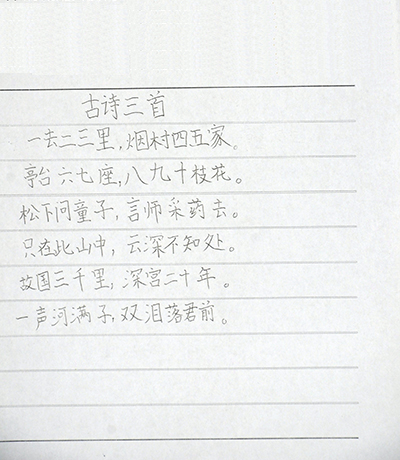 古诗三首
一去二三里,烟村四五家。
亭台六七座,八九十枝花。
松下问童子,言师采药去。
只在此山中,云深不知处。
故国三千里,深宫二十年。
一声河满子,双泪落君前。